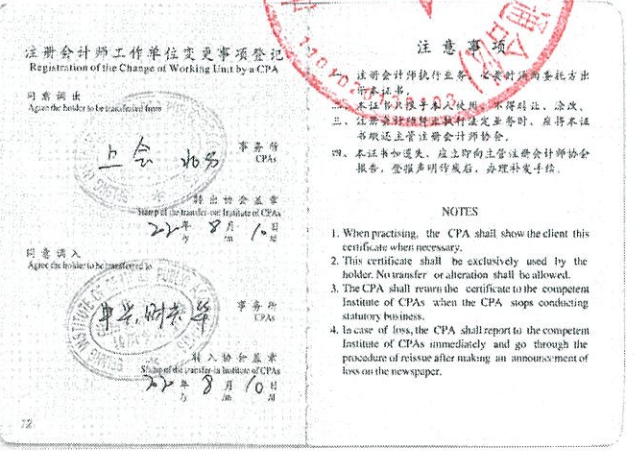 注册会计师工作单位变更事项登记
Registration of the Change of Working Unit by a CPA
同意调出
Agree the holder to be transferred from
上会
事务所
CPAs
转出协会盖章
Stamp of the transfer-out Institute of CPAs
22年 8月 10日
/y /m /d
同意调入
Agree the holder to be transferred to
中兴财光华
事务所
CPAs
转入协会盖章
Stamp of the transfer-in Institute of CPAs
22年 8月 10日
/y /m /d
12
注意事项
一、注册会计师执行业务，必要时须向委托方出
示本证书。
二、本证书只限于本人使用，不得转让、涂改。
三、注册会计师停止执行法定业务时，应将本证
书缴还主管注册会计师协会。
四、本证书如遗失，应立即向主管注册会计师协会
报告，登报声明作废后，办理补发手续。
NOTES
1. When practising, the CPA shall show the client this
certificate when necessary.
2. This certificate shall be exclusively used by the
holder. No transfer or alteration shall be allowed.
3. The CPA shall return the certificate to the competent
Institute of CPAs when the CPA stops conducting
statutory business.
4. In case of loss, the CPA shall report to the competent
Institute of CPAs immediately and go through the
procedure of reissue after making an announcement of
loss on the newspaper.